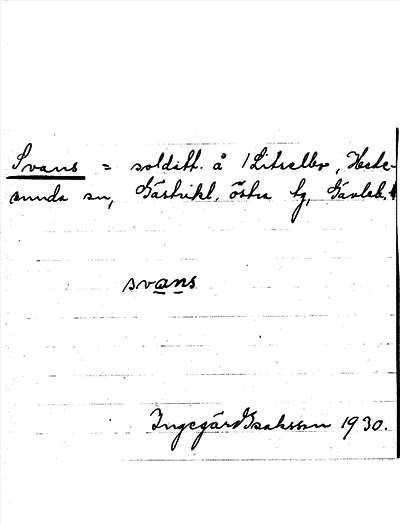 Svans = solditt. å 1 Litselbo, Hede-
sunda sn, Gästrikl. östra tg, Gävleb. l
svans
Ingegärd Isaksson 1930.